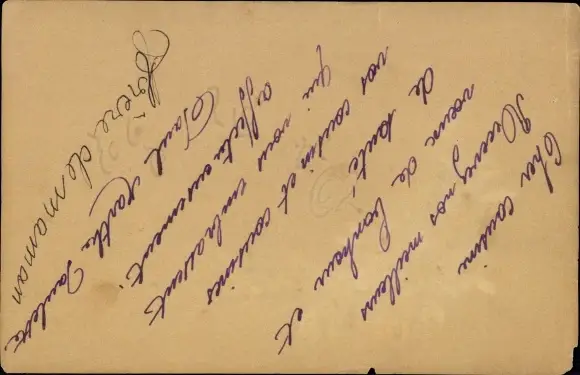 Cher cousin
Recevez nos meilleurs
vœux de bonheur et
de santé
vos cousin et cousines
qui vous embrassent
affectueusement,
Paul Marthe Paulette
Frère de maman